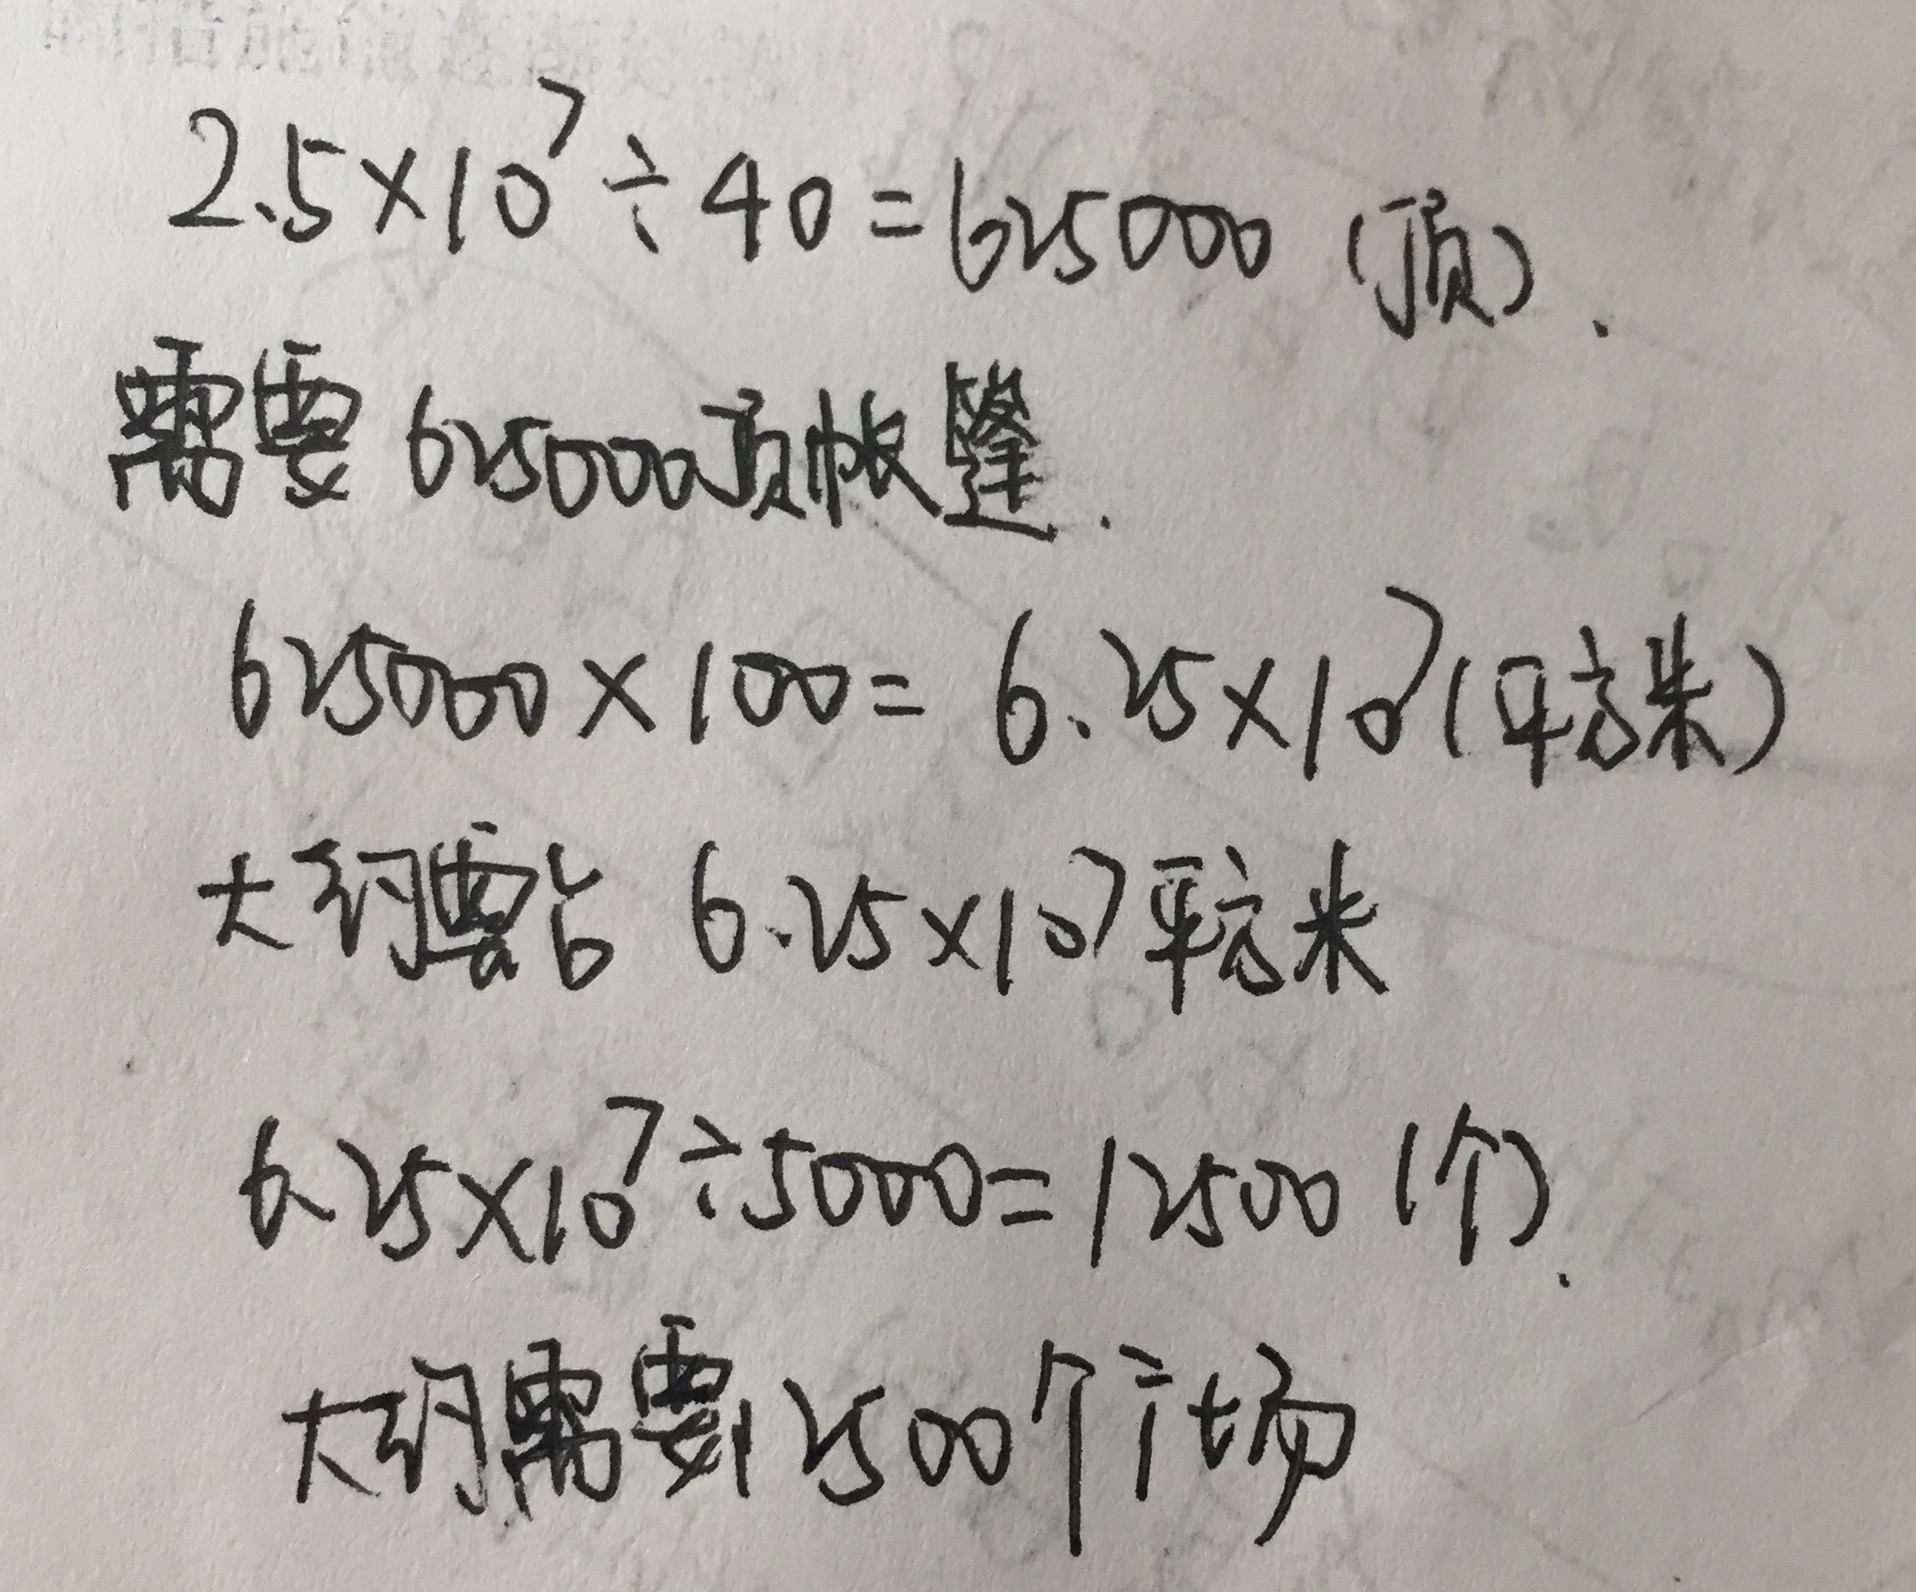 2.5×10⁷÷40=625000（顶）.
需要625000顶帐篷.
625000×100=6.25×10⁷（平方米）
大约要占 6.25×10⁷平方米
6.25×10⁷÷5000=12500（个）.
大约需要12500个广场